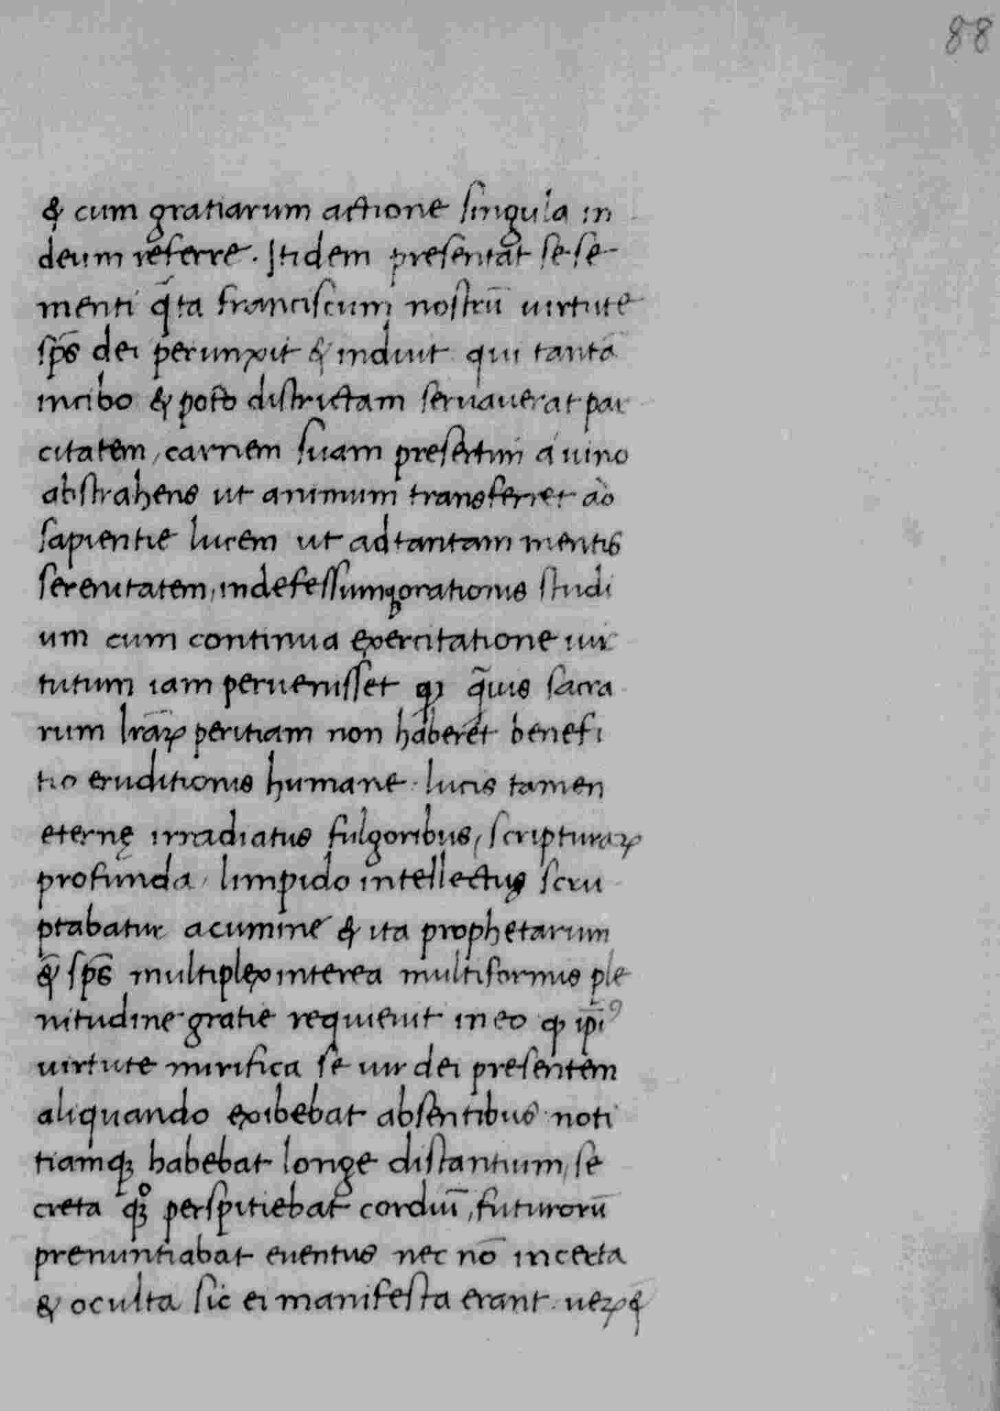 88
& cum gratiarum actione singula in
deum referre. Itidem presentat se se
menti q̃ta franciscum nostrū uirtute
sp̄s dei perunxit & induit qui tantā
in cibo & potu districtam seruauerat par
citatem, carnem suam presertim a uino
abstrahens ut animum transferret ad
sapientie lucem ut ad tantam mentis
serenitatem, indefessumq; orationis studi
um cum continua exercitatione uir
tutum iam peruenisset qꝫ q̃uis sacra
rum lr̄aꝝ peritiam non haberet benefi
tio eruditionis humane lucis tamen
eternę irradiatus fulgoribus, scripturaꝝ
profunda, limpido intellectus scru
ptabatur acumine & ita prophetarum
sp̄s multiplex interea multiformis ple
nitudine gratie requieuit in eo ꝙ ip̄iꝰ
uirtute mirifica se uir dei presentem
aliquando exibebat absentibus noti
tiamqꝫ habebat longe distantium, se
creta qꝫ° perspitiebat cordiū, futurorū
prenuntiabat euentus nec nō incerta
& oculta sic ei manifesta erant ueꝝ &